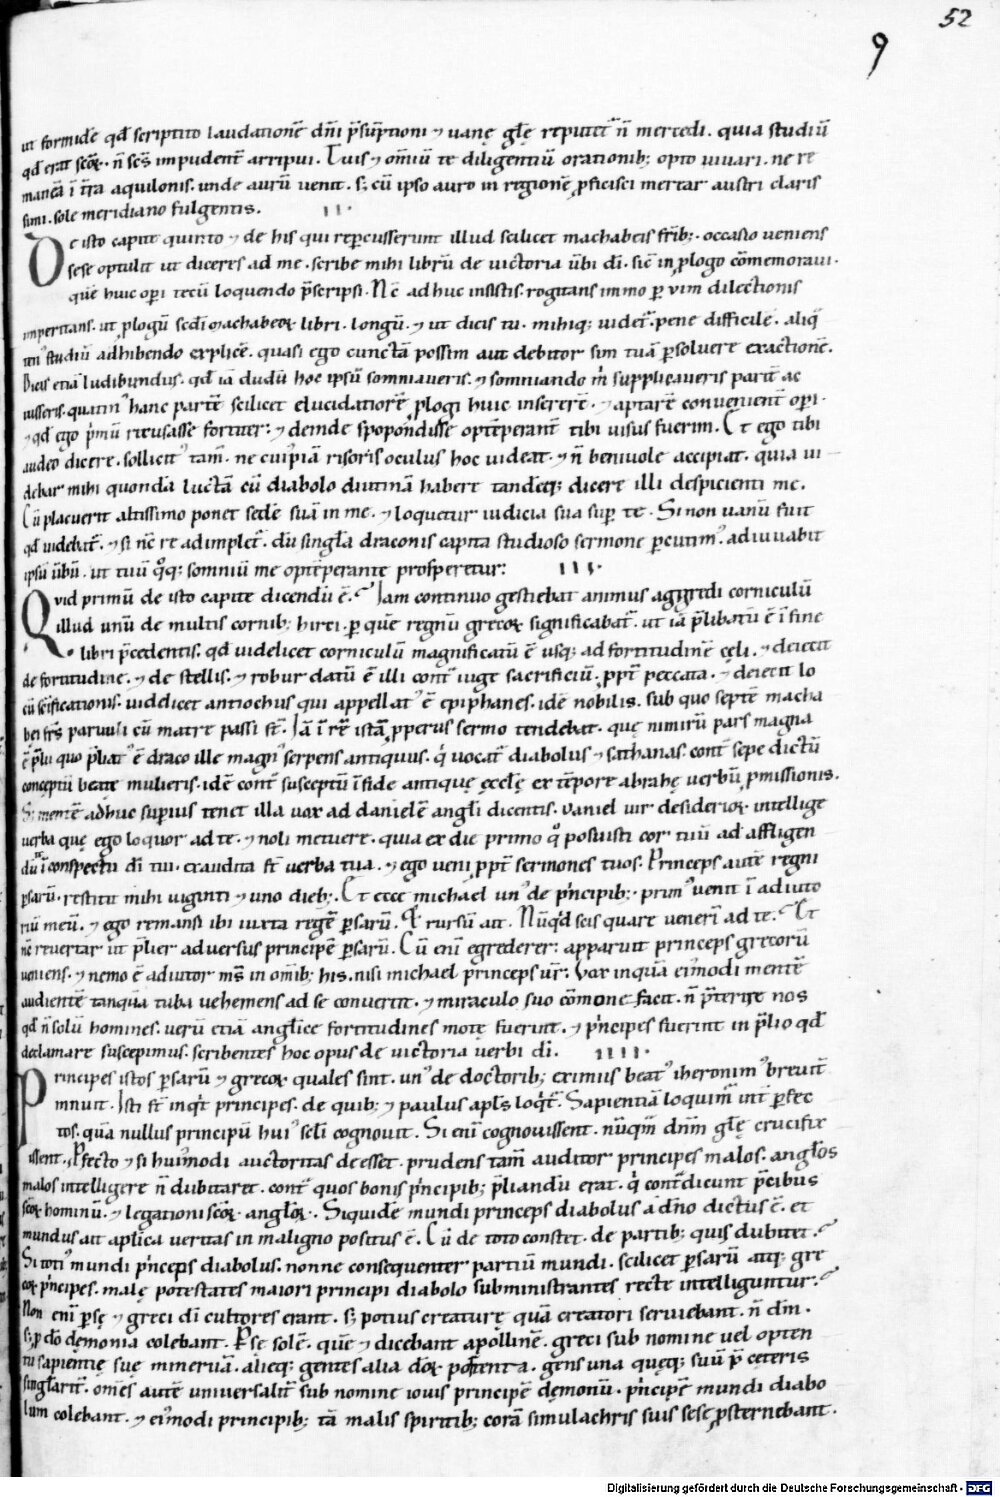 52
9
ut formidẽ qđ scriptito laudationẽ dñi p̃sũptioni ⁊ uanę gl̃ę reputet̃ ñ mercedi. quia studiũ
qđ erat scõꝝ. ñ ses̃ impudent̃ arripui. Tuis ⁊ om̃iũ te diligentiũ orationib; opto iuuari. ne re
maneã ĩ tr̃a aquilonis. unde aurũ uenit. s; cũ ipso auro in regionẽ ꝓficisci merear austri claris
simi. sole meridiano fulgentis. II.
De isto capite quinto ⁊ de his qui repercusserunt illud scilicet machabeis fr̃ib;. occasio ueniens
sese optulit ut diceres ad me. scribe mihi librũ de uictoria ũbi dĩ. sic̃ in ꝓlogo cõmemoraui.
quẽ huic op̲i tecũ loquendo p̃scripsi. Nc̃ adhuc insistis. rogitans immo p̲ uim dilectionis
imperitans. ut ꝓlogũ secđi machabeoꝝ libri. longũ. ⁊ ut dicis tu. mihiq; uidet̃. pene difficile. aliq̃
ten᾿ studiũ adhibendo explicẽ. quasi ego cunctã possim aut debitor sim tuã p̲soluere exactionẽ.
Dicis etiã ludibundus. qđ iã dudũ hoc ipsũ somniaueris. ⁊ somniando m̃ supplicaueris parit̃ ac
iusseris. quatin᾿ hanc partẽ scilicet elucidatiorẽ ꝓlogi huic insererẽ. ⁊ aptarẽ conuenient̃ op̲i.
⁊ qđ ego p̃mũ recusasse fortiter: ⁊ deinde spopondisse optẽperant̃ tibi uisus fuerim. Et ego tibi
audeo dicere. sollicit᾿ tam̃. ne cui᾿piã risoris oculus hoc uideat. ⁊ ñ beniuole accipiat. quia ui
debar mihi quondã luctã cũ diabolo diutinã habere tandẽq; dicere illi despicienti me.
Cũ placuerit altissimo ponet sedẽ suã in me. ⁊ loquetur iudicia sua sup̲ te. Si non uanũ fuit
qđ uidebat̃. ⁊ si nc̃ re adimplet̃. dũ singl̃a draconis capita studioso sermone p̲cutim᾿. adiuuabit
ipsũ ũbũ. ut tuũ q̃q; somniũ me optẽperante prosperetur: III.
Quid primũ de isto capite dicendũ ẽ. Iam continuo gestiebat animus aggredi corniculũ
illud unũ de multis cornib; hirci. p̲ quẽ regnũ grecoꝝ significabat̃. ut iã p̃libatũ ẽ ĩ fine
libri p̃cedentis. qđ uidelicet corniculũ magnificatũ ẽ usq; ad fortitudinẽ cęli. ⁊ deiecit
de fortitudine. ⁊ de stellis. ⁊ robur datũ ẽ illi cont̃ iuge sacrificiũ. ꝓpt̃ peccata. ⁊ deiecit lo
cũ sc̃ificationis. uidelicet antiochus qui appellat᾿ ẽ epiphanes. idẽ nobilis. sub quo septẽ macha
bei fr̃s paruuli cũ matre passi st̃. Iã ĩ rẽ istã ꝓperus sermo tendebat. quę nimirũ pars magna
ẽ p̃lii quo p̃liat᾿ ẽ draco ille magn᾿ serpens antiquus. q̃ uocat̃ diabolus ⁊ sathanas. cont̃ sepe dictũ
conceptũ beatę mulieris. idẽ cont̃ susceptũ ĩ fide antiquę ęcclę̃ ex tẽpore abrahę uerbũ ꝓmissionis.
Si mentẽ adhuc sup̲ius tenet illa uox ad danielẽ angl̃i dicentis. Daniel uir desiderioꝝ. intellige
uerba quę ego loquor ad te. ⁊ noli metuere. quia ex die primo q̃ posuisti cor tuũ ad affligen
dũ te ĩ conspectu dĩ tui. exaudita st̃ uerba tua. ⁊ ego ueni ꝓpt̃ sermones tuos. Princeps autẽ regni
p̲sarũ. restitit mihi uiginti ⁊ uno dieb;. Et ecce michael un᾿ de p̃ncipib;. prim᾿ uenit ĩ adiuto
riũ meũ. ⁊ ego remansi ibi iuxta regẽ p̲sarũ. Et rursũ ait. Nũqđ scis quare uenerĩ ad te. Et
nc̃ reuertar ut p̃lier aduersus principẽ p̲sarũ. Cũ enĩ egrederer: apparuit princeps grecorũ
ueniens. ⁊ nemo ẽ adiutor ms̃ in om̃ib; his. nisi michael princeps ur̃: Vox inquã ei᾿modi mentẽ
audientẽ tanquã tuba uehemens ad se conuertit. ⁊ miraculo suo cõmone facit. ñ p̃terire nos
qđ ñ solũ homines. uerũ etiã angl̃ice fortitudines motę fuerint. ⁊ p̃ncipes fuerint in p̃lio qđ
declamare suscepimus. scribentes hoc opus de uictoria uerbi dĩ. IIII.
Principes istos p̲sarũ ⁊ grecoꝝ quales sint. un᾿ de doctorib; eximius beat᾿ iheronim᾿ breuit̃
innuit. Isti st̃ inq̃t principes. de quib; ⁊ paulus apl̃s loq̃t̃. Sapientiã loquim̃ int̃ p̲fec
tos. quã nullus principũ hui᾿ scl̃i cognouit. Si enĩ cognouissent. nũqm̃ dñm gl̃ę crucifix
issent. P̲fecto ⁊ si hui᾿modi auctoritas deesset. prudens tam̃ auditor principes malos. angl̃os
malos intelligere ñ dubitaret. cont̃ quos bonis p̃ncipib; p̃liandũ erat. q̃ cont̃dicunt p̃cibus
scõꝝ hominũ. ⁊ legationi scõꝝ angl̃oꝝ. Siquidẽ mundi princeps diabolus a dño dictus ẽ. et
mundus ait apl̃ica ueritas in maligno positus ẽ. Cũ de toto constet. de partib; quis dubitet.
Si toti᾿ mundi p̃nceps diabolus. nonne consequenter partiũ mundi. scilicet p̲sarũ atq; gre
coꝝ p̃ncipes. malę potestates maiori principi diabolo subministrantes recte intelliguntur.
Non enĩ p̲sę ⁊ greci dĩ cultores erant. s; potius creaturę quã creatori seruiebant. ñ dm̃.
s; ꝓ dõ dęmonia colebant. P̲sę solẽ. quẽ ⁊ dicebant apollinẽ. greci sub nomine uel opten
tu sapientię suę mineruã. alięq; gentes alia dõꝝ portenta. gens una quęq; suũ p̃ ceteris
singl̃arit̃. om̃es autẽ uniuersalit̃ sub nomine iouis principẽ dęmonũ. p̃ncipẽ mundi diabo
lum colebant. ⁊ ei᾿modi principib; tã malis spiritib; corã simulachris suis sese ꝓsternebant.
Digitalisierung gefördert durch die Deutsche Forschungsgemeinschaft - DFG